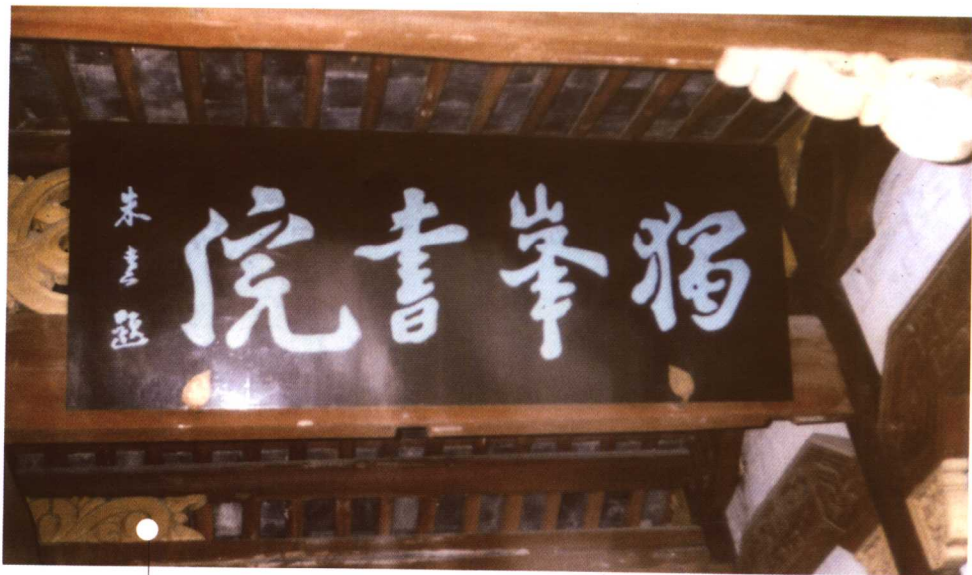 獨峯書院
朱熹題